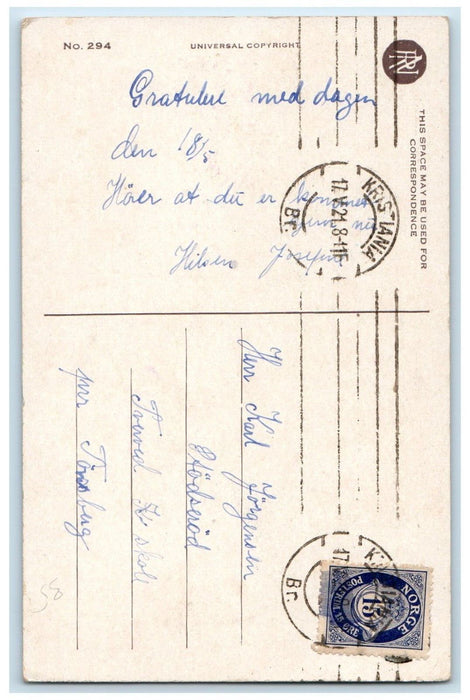 No. 294
UNIVERSAL COPYRIGHT
RN
THIS SPACE MAY BE USED FOR
CORRESPONDENCE
Gratulere med dagen
den 18/5
Hører at du er kommet
hjem nu
Hilsen Josefine
KRISTIANIA
17.V.21.8-9 1/2 E
Br.
Herr Karl Jørgensen
Stødserød
skole
pr Tønsberg
KRISTIANIA
17.
Br.
NORGE
POSTFRIM
15
ØRE
58